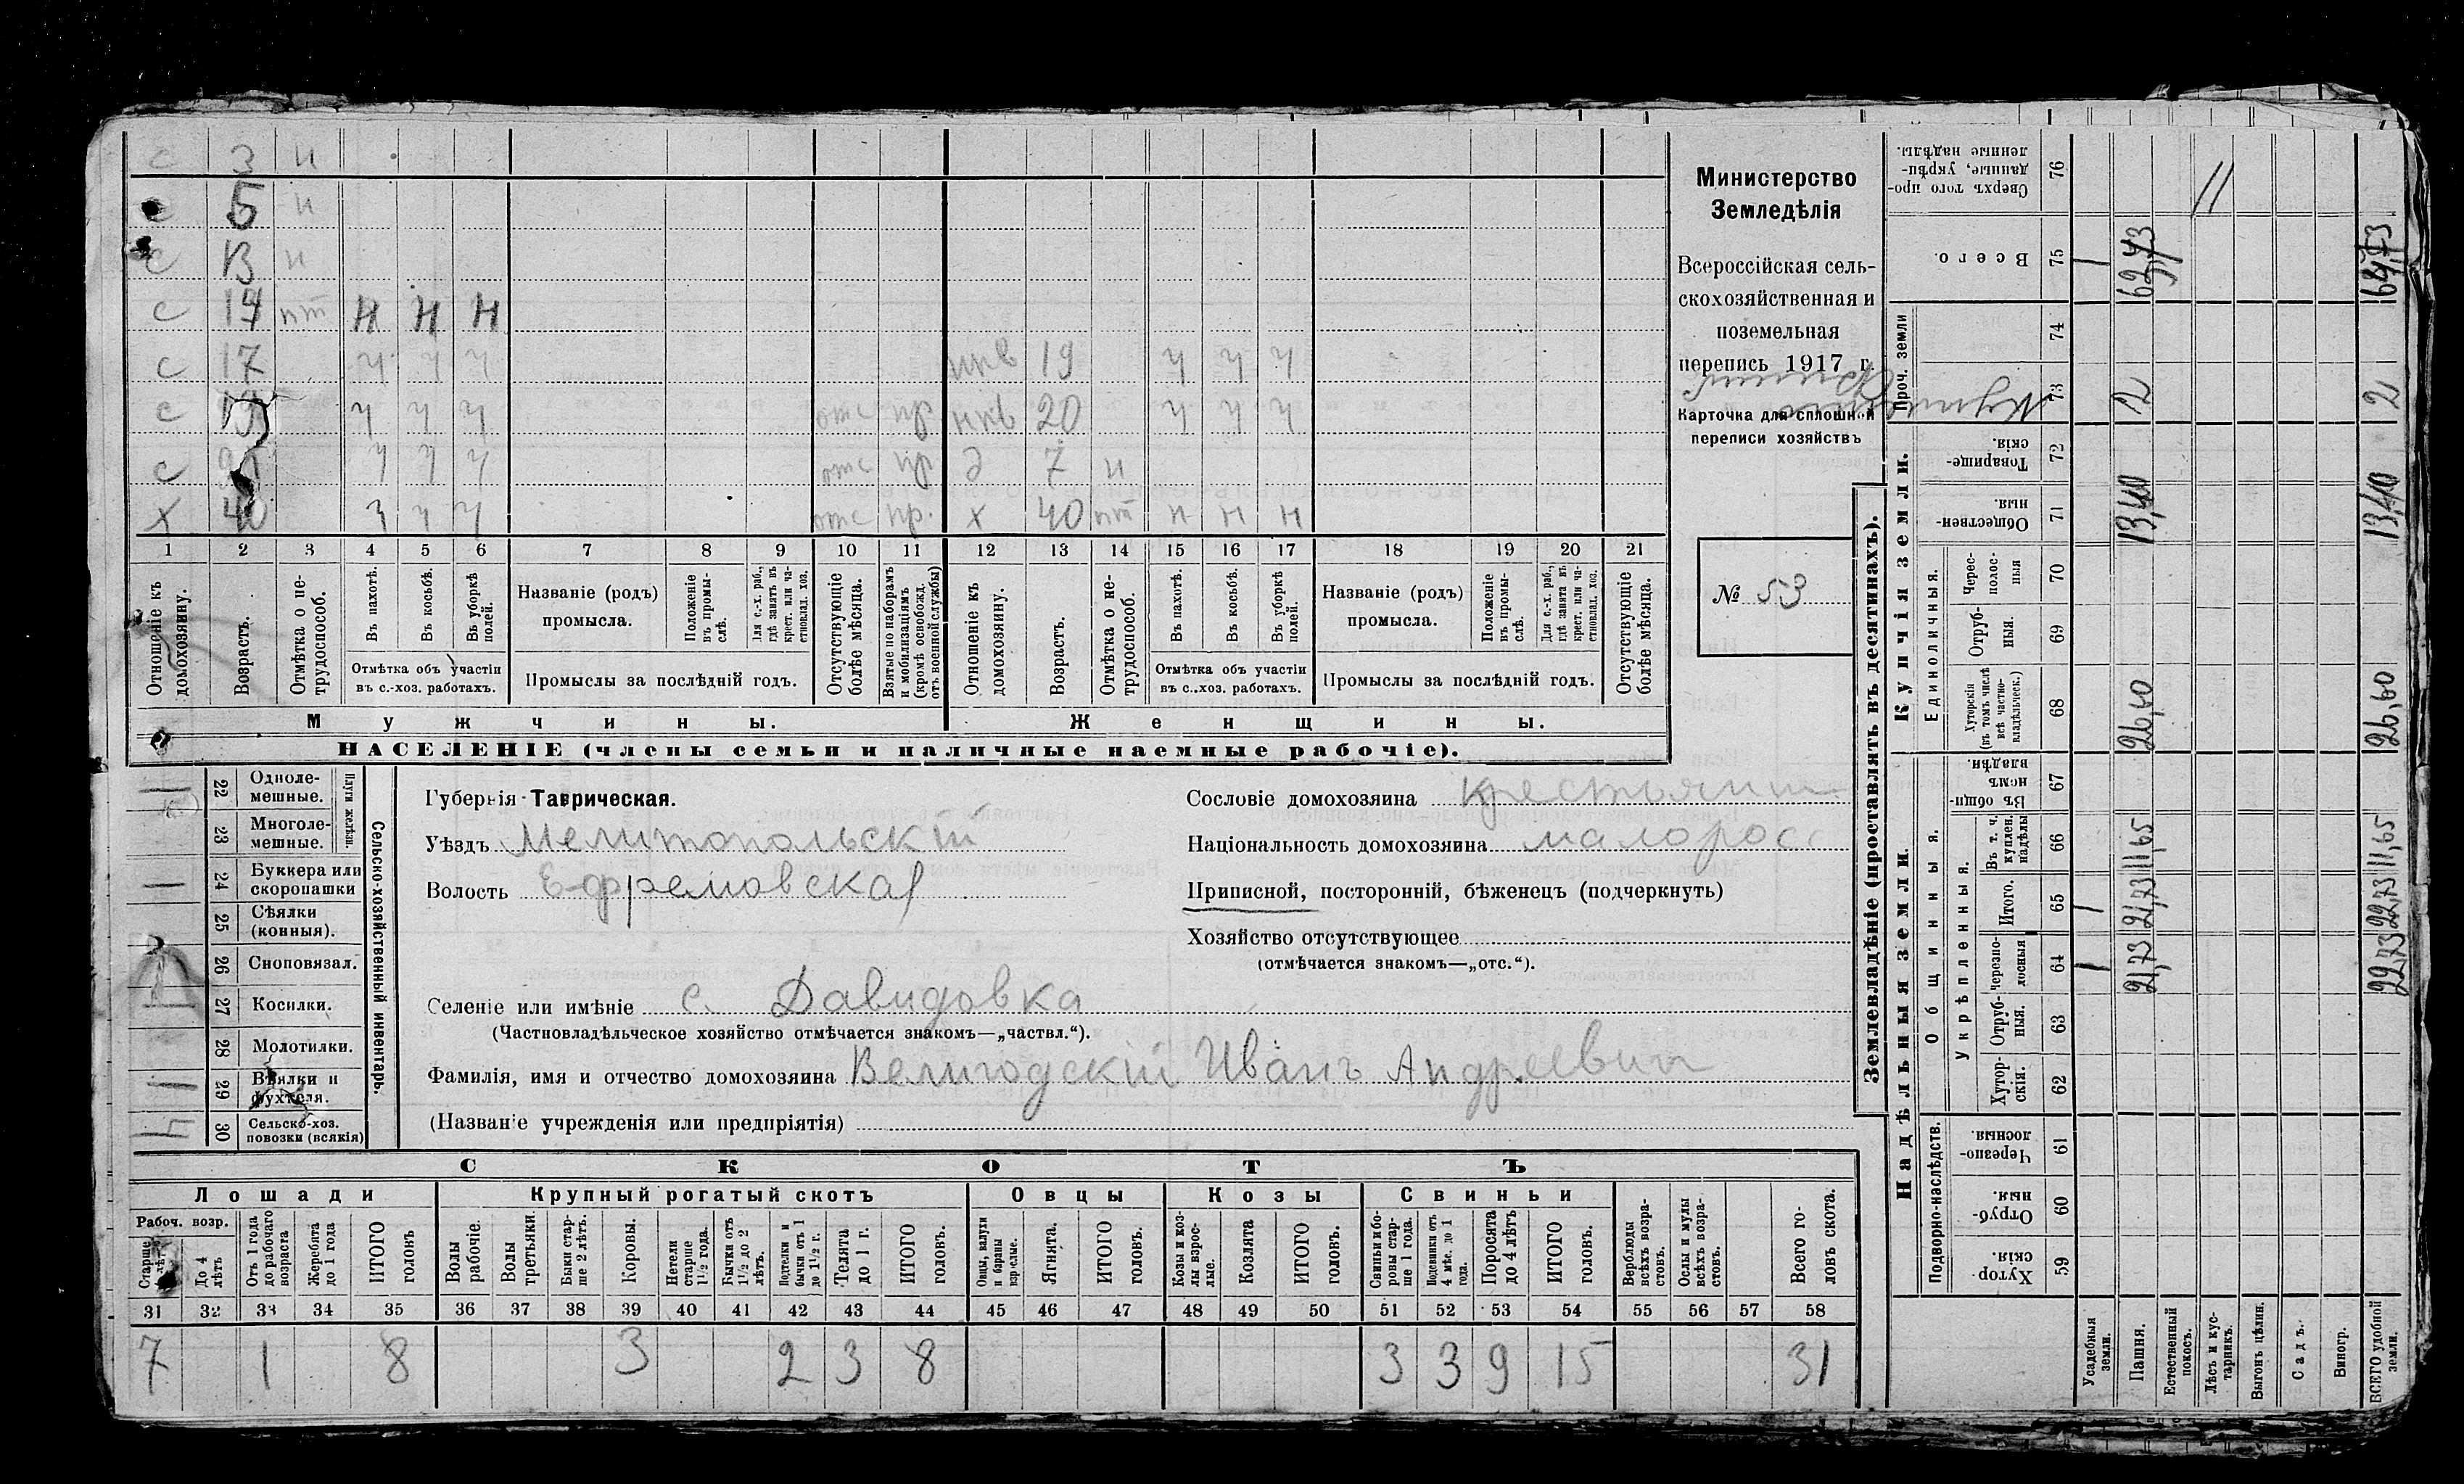 с 3 н
с 5 н
с 13 н
с 14 пт н н н
с 17 ч ч ч нкв 19 ч ч ч
с 19 ч ч ч отс пр нкв 20 ч ч ч
с ч ч ч отс пр д 7 н
х 40 ч ч ч отс пр. х 40 пт н н н
1 2 3 4 5 6 7 8 9 10 11 12 13 14 15 16 17 18 19 20 21
Отношеніе къ домохозяину.
Возрастъ.
Отмѣтка о не-трудоспособ.
Въ пахотѣ.
Въ косьбѣ.
Въ уборкѣ полей.
Отмѣтка объ участіи
въ с.-хоз. работахъ.
Названіе (родъ)
промысла.
Положеніе въ промы-слѣ.
Для с.-х. раб., гдѣ занятъ въ крест. или ча-стновлад. хоз.
Промыслы за послѣдній годъ.
Отсутствующіе болѣе мѣсяца.
Взятые по наборамъ и мобилизаціямъ (кромѣ освобожд. отъ военной службы)
Отношеніе къ домохозяину.
Возрастъ.
Отмѣтка о не-трудоспособ.
Въ пахотѣ.
Въ косьбѣ.
Въ уборкѣ полей.
Отмѣтка объ участіи
въ с.-хоз. работахъ.
Названіе (родъ)
промысла.
Положеніе въ промы-слѣ.
Для с.-х. раб., гдѣ занята въ крест. или ча-стновлад. хоз.
Промыслы за послѣдній годъ.
Отсутствующіе болѣе мѣсяца.
Мужчины. Женщины.
НАСЕЛЕНІЕ (члены семьи и наличные наемные рабочіе).
Министерство
Земледѣлія
Всероссійская сель-
скохозяйственная и
поземельная
перепись 1917 г.
Карточка для сплошной
переписи хозяйствъ
№ 53
Сельско-хозяйственный инвентарь.
Плуги желѣзн.
22 Одноле-
мешные.
23 Многоле-
мешные.
24 Буккера или
скоропашки
25 Сѣялки
(конныя).
26 Сноповязал.
27 Косилки.
28 Молотилки.
29 Вѣялки и
фухтеля.
30 Сельско-хоз.
повозки (всякія)
Губернія Таврическая.
Уѣздъ Мелитопольскій
Волость Ефремовская
Селеніе или имѣніе с. Давидовка
(Частновладѣльческое хозяйство отмѣчается знакомъ—„частвл.“).
Фамилія, имя и отчество домохозяина Велигодскій Иванъ Андреевич
(Названіе учрежденія или предпріятія)
Сословіе домохозяина крестьянин
Національность домохозяина малорос
Приписной, посторонній, бѣженецъ (подчеркнуть)
Хозяйство отсутствующее
(отмѣчается знакомъ—„отс.“).
СКОТЪ
Лошади Крупный рогатый скотъ Овцы Козы Свиньи
Рабоч. возр.
Старше 4 лѣтъ
До 4 лѣтъ
Отъ 1 года до рабочаго возраста
Жеребята до 1 года
ИТОГО головъ
Волы рабочіе.
Волы третьяки.
Быки стар-ше 2 лѣтъ.
Коровы.
Нетели старше 1½ года.
Бычки отъ 1½ до 2 лѣтъ.
Подтелки и бычки отъ 1 до 1½ г.
Телята до 1 г.
ИТОГО головъ.
Овцы, валухи и бараны взрослые.
Ягнята.
ИТОГО головъ.
Козы и коз-лы взрос-лые.
Козлята
ИТОГО головъ.
Свиньи и бо-ровы стар-ше 1 года.
Подсвинки отъ 4 мѣс. до 1 года.
Поросята до 4 лѣтъ
ИТОГО головъ.
Верблюды всѣхъ возра-стовъ.
Ослы и мулы всѣхъ возра-стовъ.
Всего го-ловъ скота.
31 32 33 34 35 36 37 38 39 40 41 42 43 44 45 46 47 48 49 50 51 52 53 54 55 56 57 58
7 1 8 3 2 3 8 3 3 9 15 31
Землевладѣніе (проставлять въ десятинахъ).
Надѣльныя земли. Купчія земли. Проч. земли
Подворно-наслѣдств.
Общинныя.
Укрѣпленныя.
Единоличныя.
Хутор-скія. 59
Отруб-ныя. 60
Черезпо-лосныя. 61
Хутор-скія. 62
Отруб-ныя. 63
Черезпо-лосныя 64
Итого. 65
Въ т. ч. куплен. надѣлы 66
Въ общин-номъ владѣн. 67
Хуторскія (въ томъ числѣ всѣ частно-владѣльческ.) 68
Отруб-ныя. 69
Черес-полос-ныя 70
Обществен-ныя. 71
Товарище-скія. 72
73
74
Всего. 75
Сверхъ того про-данные, укрѣп-ленные надѣлы. 76
Усадебныя земли. 1 1 1
Пашня. 21,73 21,73 11,65 26,60 13,40 12 62,73
Естественный покосъ.
Лѣсъ и кус-тарникъ. 11
Выгонъ цѣлин.
Садъ.
Виногр.
ВСЕГО удобной земли. 22,73 22,73 11,65 26,60 13,40 2 64,73